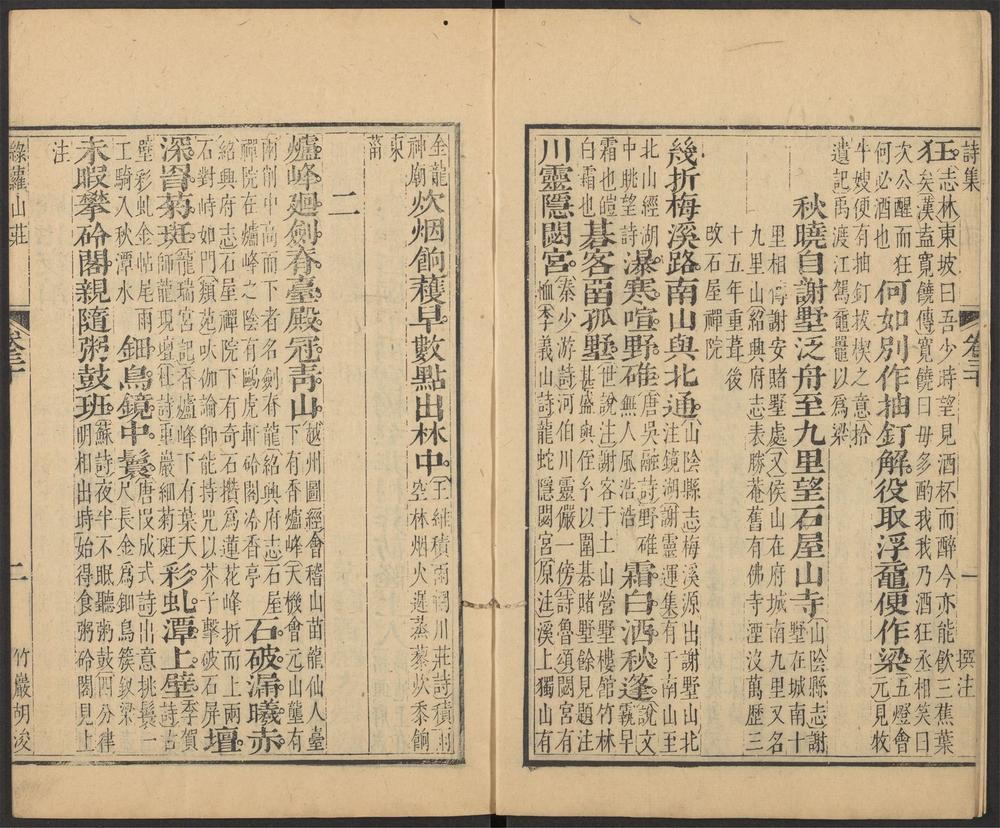 詩集 卷三十 一 撰注
狂志林東坡曰吾少時望見酒杯而醉今亦能飲三蕉葉矣漢蓋寬饒傳寬饒曰毋多酌我我乃酒狂丞相笑曰
次公醒而狂何必酒也何如別作抽釘解役取浮黿便作梁五燈會元見牧
牛嫂便有抽釘拔楔之意拾遺記禹渡江駕黿鼉以爲梁
秋曉自謝墅泛舟至九里望石屋山寺山陰縣志謝墅在城南十
里相傳謝安賭墅處又侯山在府城南九里又名
九里山紹興府志表勝菴舊有佛寺湮沒萬歷三
十五年重葺後
改石屋禪院
幾折梅溪路南山與北通山陰縣志梅溪源出謝墅山北注鏡湖謝靈運集有于南山至
北山經湖中眺望詩瀑寒喧野碓唐吳融詩野碓無人風浩浩霜白洒秋篷說文早
霜也也皚白霜也碁客留孤墅世說注謝客于土山營墅樓館竹林甚盛與侄以圍碁賭墅餘見題注
川靈隱閟宮秦少游詩河伯川靈儼一傍詩魯頌閟宮有侐李義山詩龍蛇隱閟宮原注溪上獨山有
金龍神廟炊烟餉穫早數點出林中王維積雨輞川莊詩積雨空林烟火遲蒸藜炊黍餉
東菑
二
爐峰廻劍脊臺殿冠靑山越州圖經會稽山苗龍仙人臺下有香爐峰天機會元山壟有
開削中高而下者名劍脊龍紹興府志石屋禪院在爐峰之陰有嘯虎軒砱閣冷香亭石破漏曦赤
紹興府志石屋禪院下有奇石攢爲蓮花峰折而上兩石對峙如門類苑吠伽論師能持咒以芥子擊破石屏壇
深冒菊斑龍瑞宮記香爐峰下有葉天師龍現壇杜詩重巖細菊斑彩虬潭上壁李賀詩古
壁彩虬金帖尾雨工騎入秋潭水鈿鳥鏡中鬟唐段成式詩出意挑鬟一尺長金爲鈿鳥簇釵梁
未暇攀砱閣親隨粥鼓班蘇詩夜半不眠聽粥鼓四分律明相出時始得食粥砱閣見上
注
綠蘿山莊 卷三十 二 竹巖胡浚